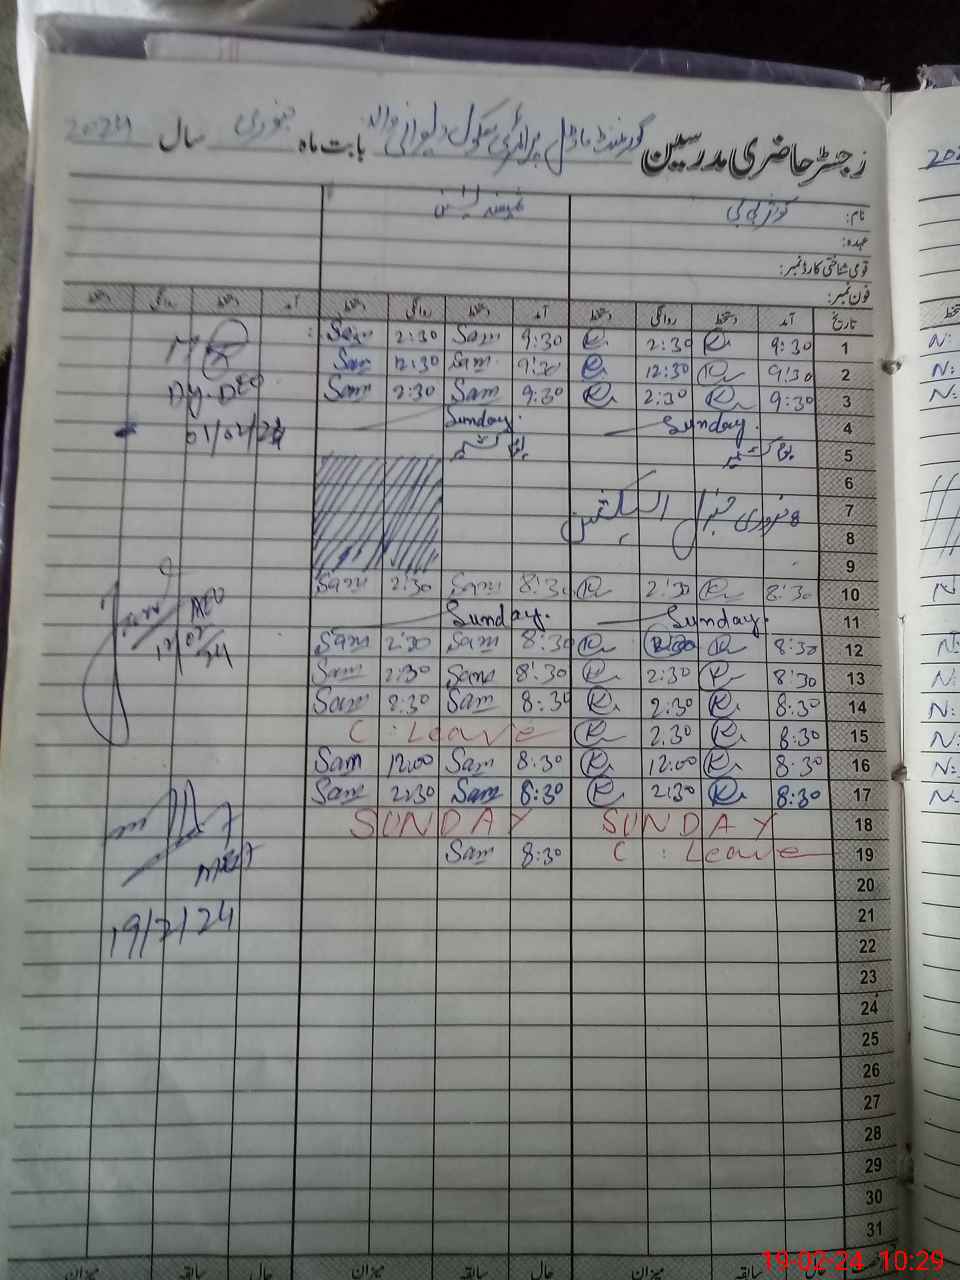 رجسٹر حاضری مدرسین گورنمنٹ ماڈل پرائمری سکول دیوانی والہ بابت ماہ جنوری سال 2024
نام: کوثر بی بی
عہدہ:
قومی شناختی کارڈ نمبر:
فون نمبر:
تاریخ آمد دستخط روانگی دستخط آمد دستخط روانگی دستخط آمد دستخط روانگی دستخط
1 9:30 K 2:30 K 9:30 Sam 2:30 Sam
2 9:30 K 12:30 K 9:30 Sam 12:30 Sam
3 9:30 K 2:30 K 9:30 Sam 2:30 Sam
Dy. DEO
4 Sunday. Sunday.
01/02/24
5 یوم کشمیر یوم کشمیر
6
7 8 فروری جنرل الیکشن
8
9
10 8:30 K 2:30 K 8:30 Sam 2:30 Sam
AEO
11 Sunday. Sunday.
12/02/24
12 8:30 K 2:30 K 8:30 Sam 2:30 Sam
13 8:30 K 2:30 K 8:30 Sam 2:30 Sam
14 8:30 K 2:30 K 8:30 Sam 2:30 Sam
15 8:30 K 2:30 K C : Leave
16 8:30 K 12:00 K 8:30 Sam 12:00 Sam
17 8:30 K 2:30 K 8:30 Sam 2:30 Sam
18 SUNDAY SUNDAY
19 C : Leave 8:30 Sam
MEA
20
21
19/2/24
22
23
24
25
26
27
28
29
30
31
میزان سابقہ حال میزان سابقہ حال میزان سابقہ
19-02-24 10:29